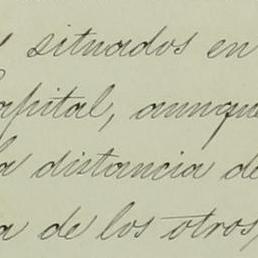 y situados en
Capital, aunque
la distancia de
a de los otros,